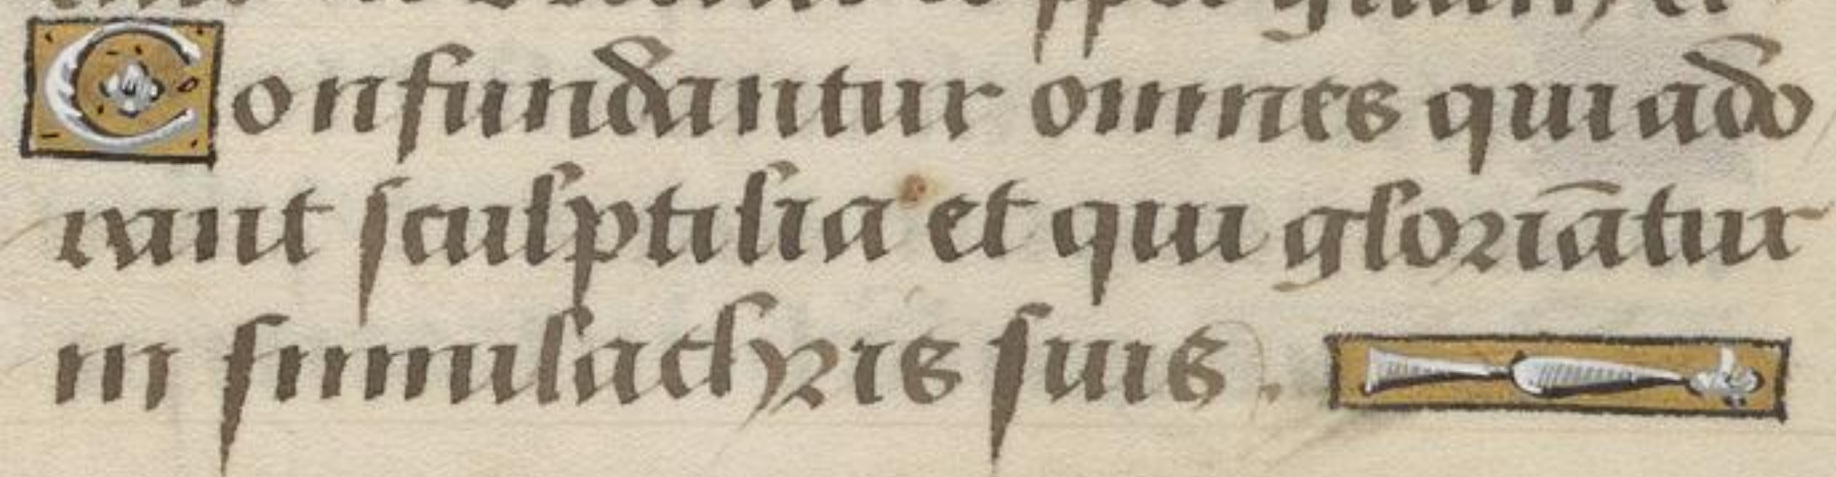 Confundantur omnes qui ado
rant sculptilia et qui gloriātur
in simulachris suis.